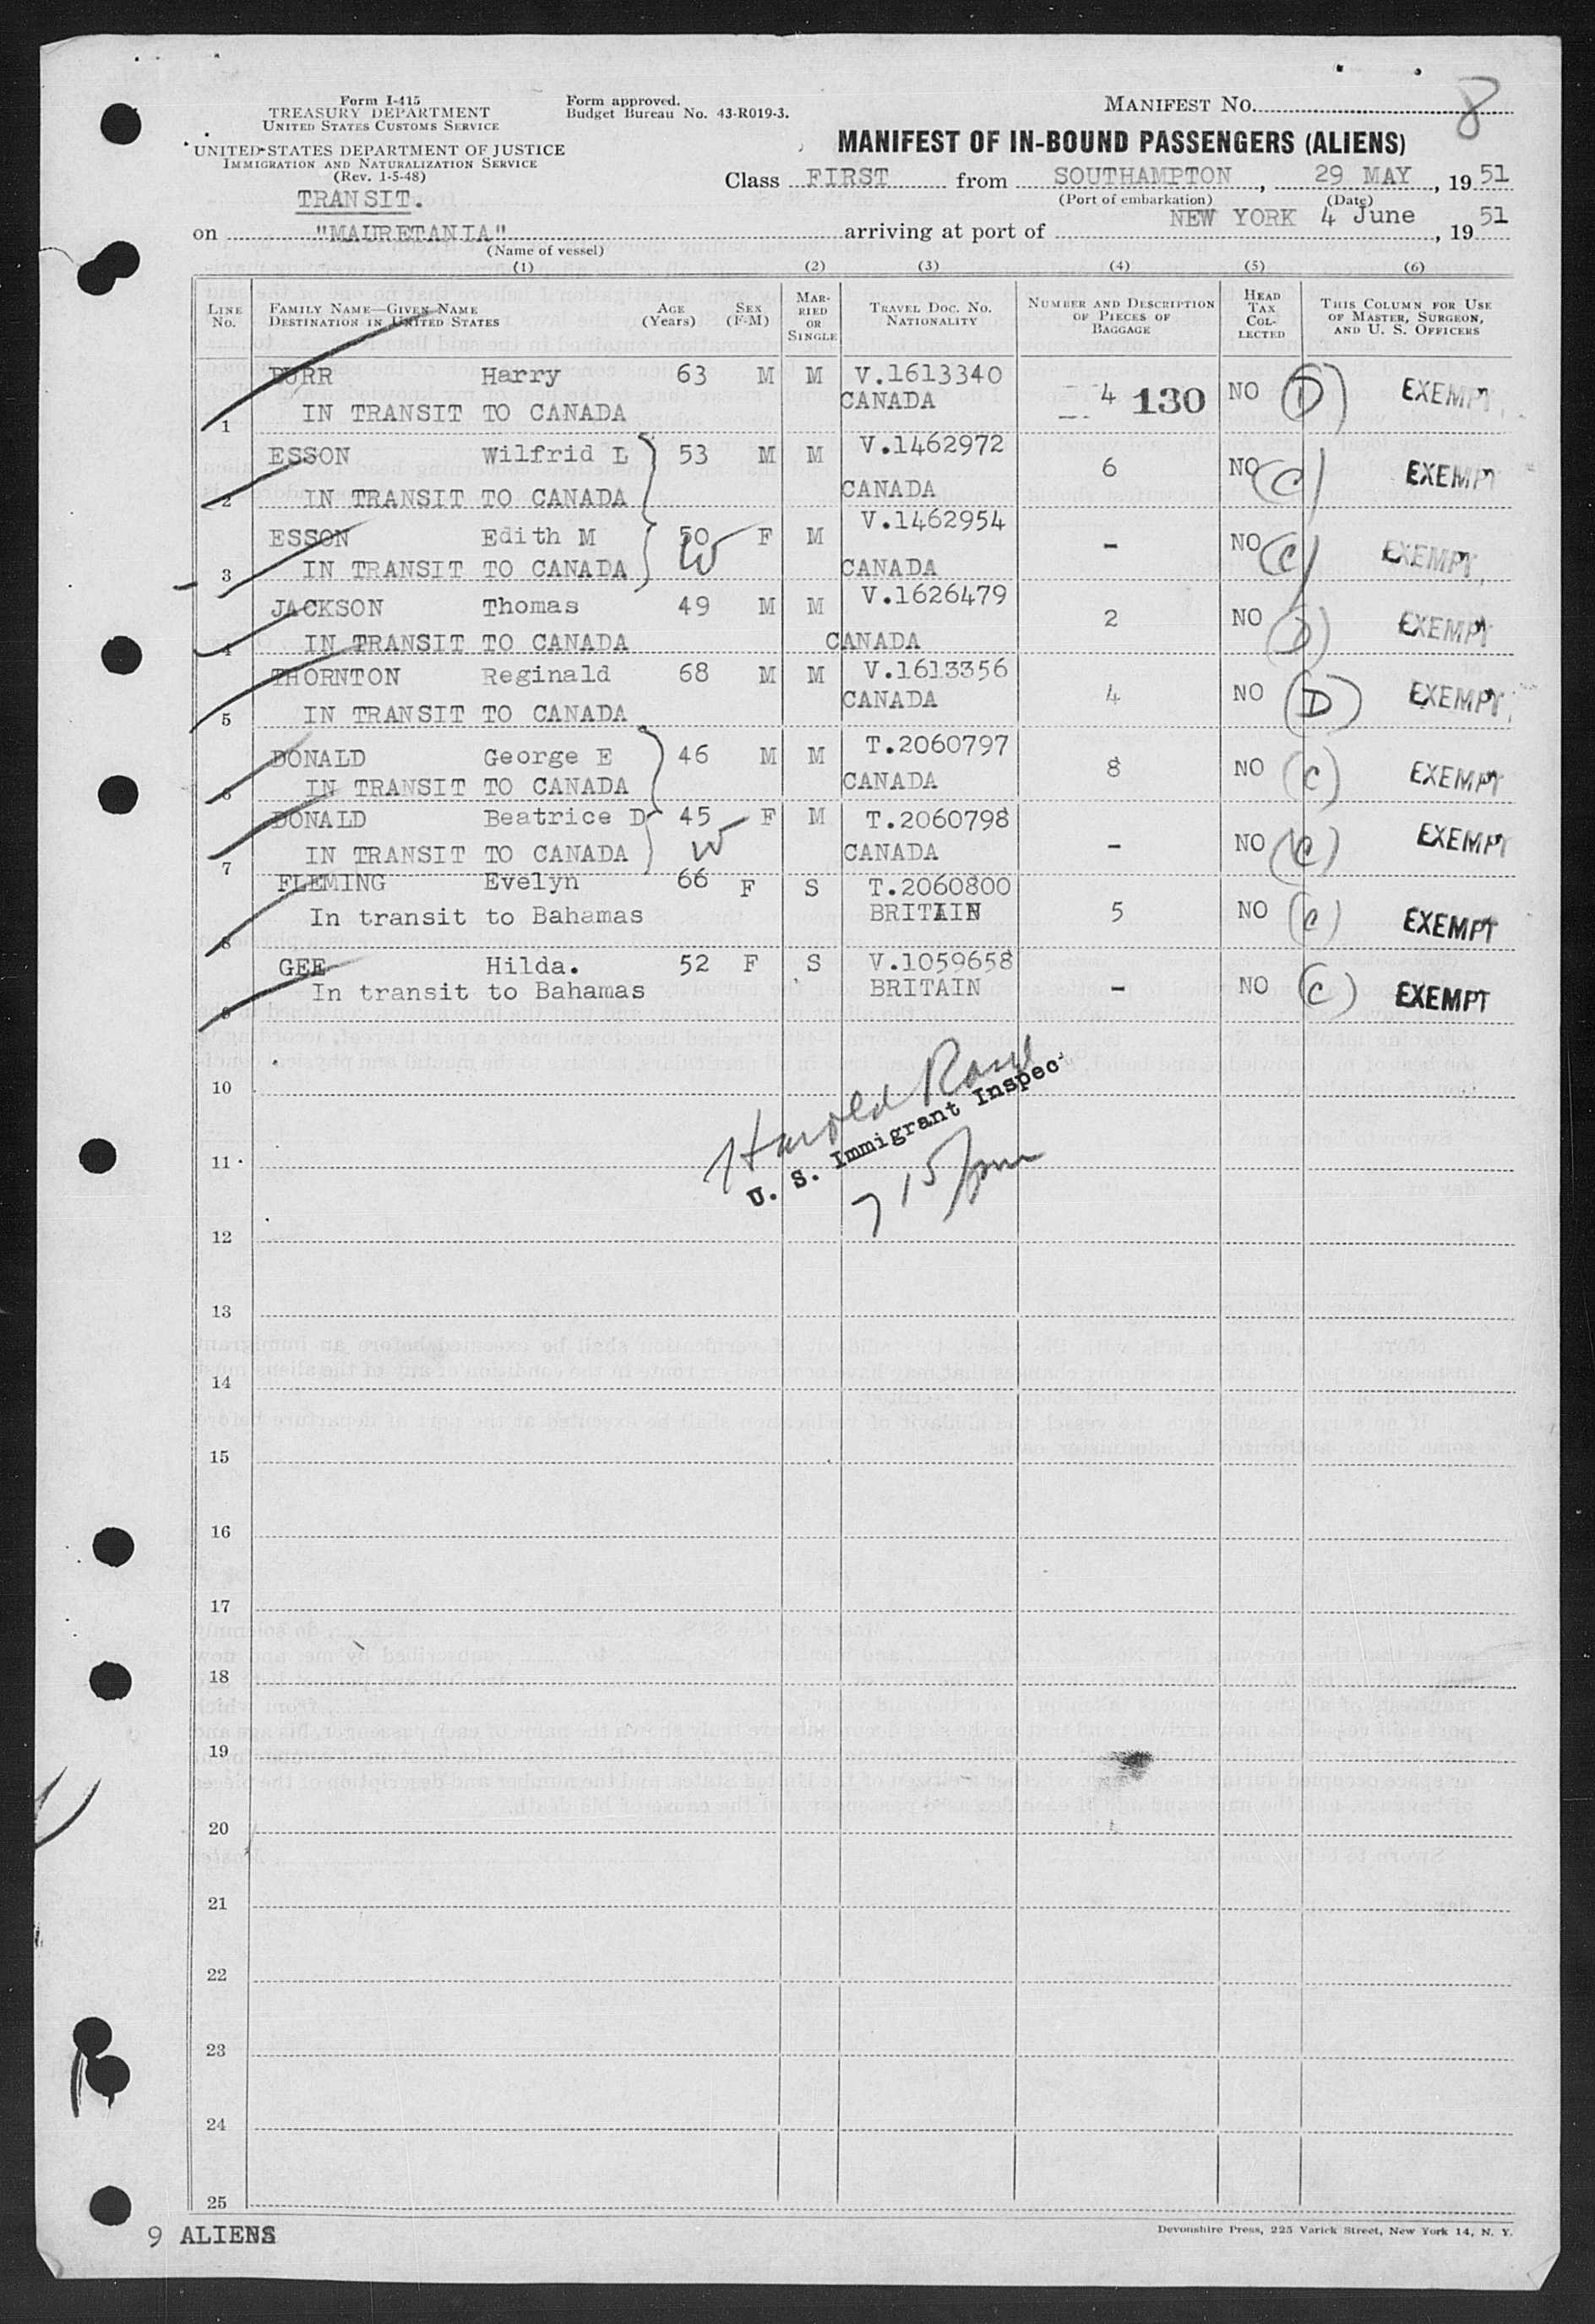 Form I-415
TREASURY DEPARTMENT
UNITED STATES CUSTOMS SERVICE
UNITED STATES DEPARTMENT OF JUSTICE
IMMIGRATION AND NATURALIZATION SERVICE
(Rev. 1-5-48)
TRANSIT.
Form approved.
Budget Bureau No. 43-R019-3.
MANIFEST NO. 8
MANIFEST OF IN-BOUND PASSENGERS (ALIENS)
Class FIRST from SOUTHAMPTON, 29 MAY, 1951
(Port of embarkation) (Date)
on "MAURETANIA" arriving at port of NEW YORK 4 June, 1951
(Name of vessel)
(1) (2) (3) (4) (5) (6)
LINE NO. FAMILY NAME—GIVEN NAME DESTINATION IN UNITED STATES AGE (Years) SEX (F-M) MARRIED OR SINGLE TRAVEL DOC. NO. NATIONALITY NUMBER AND DESCRIPTION OF PIECES OF BAGGAGE HEAD TAX COLLECTED THIS COLUMN FOR USE OF MASTER, SURGEON, AND U. S. OFFICERS
Harry 63 M M V.1613340 4 130 NO (D) EXEMPT
1 IN TRANSIT TO CANADA CANADA
ESSON Wilfrid L 53 M M V.1462972 6 NO (C) EXEMPT
2 IN TRANSIT TO CANADA CANADA
ESSON Edith M 50 W F M V.1462954 - NO (C) EXEMPT
3 IN TRANSIT TO CANADA CANADA
JACKSON Thomas 49 M M V.1626479 2 NO (D) EXEMPT
4 IN TRANSIT TO CANADA CANADA
THORNTON Reginald 68 M M V.1613356 4 NO (D) EXEMPT
5 IN TRANSIT TO CANADA CANADA
DONALD George E 46 M M T.2060797 8 NO (C) EXEMPT
6 IN TRANSIT TO CANADA CANADA
DONALD Beatrice D 45 W F M T.2060798 - NO (C) EXEMPT
7 IN TRANSIT TO CANADA CANADA
FLEMING Evelyn 66 F S T.2060800 5 NO (C) EXEMPT
8 In transit to Bahamas BRITAIN
GEE Hilda. 52 F S V.1059658 - NO (C) EXEMPT
9 In transit to Bahamas BRITAIN
10
Harold
U. S. Immigrant Inspec
11
7 15 pm
12
13
14
15
16
17
18
19
20
21
22
23
24
25
9 ALIENS
Devonshire Press, 225 Varick Street, New York 14, N. Y.